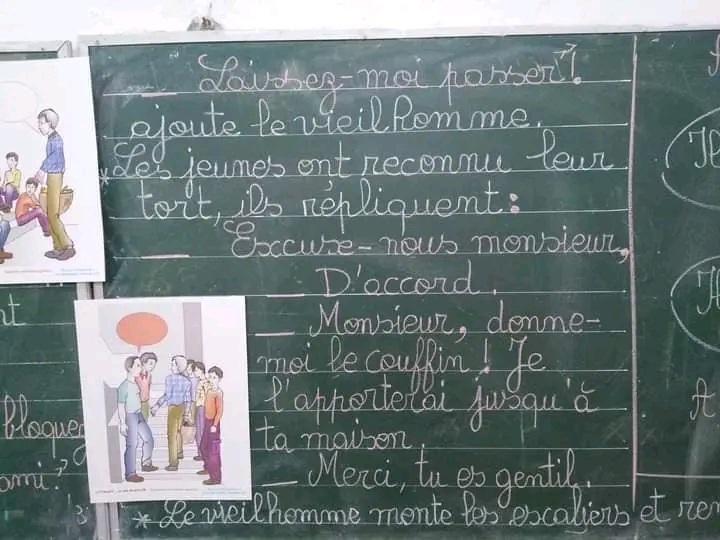 _ Laissez-moi passer!
ajoute le vieil homme.
* Les jeunes ont reconnu leur
tort, ils répliquent:
_ Excuse-nous monsieur,
_ D'accord.
_ Monsieur, donne-
moi le couffin! Je
l'apporterai jusqu'à
ta maison.
_ Merci, tu es gentil.
* Le vieil homme monte les escaliers et
bloquez
ami?